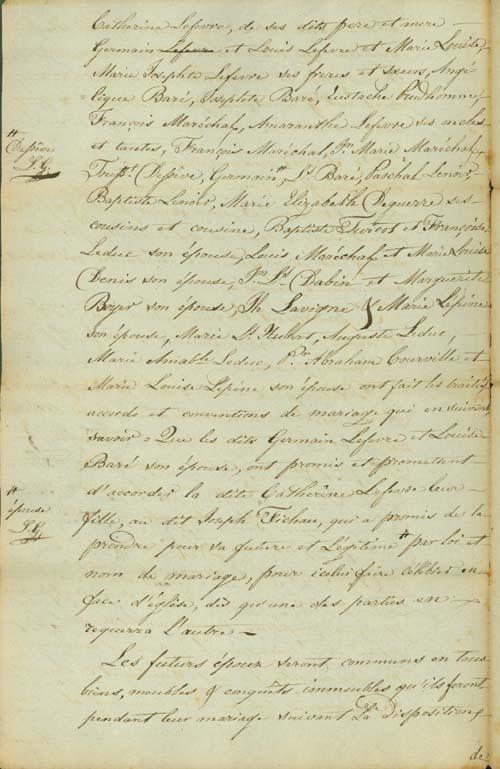 Catherine Lefevre, de ses dits frere et mere
Germain Lefevre et Louis Lefevre et Marie Louise,
Marie Josephte Lefevre ses freres et sœurs, Angé-
=lique Baré, Josephte Baré, Eustache Prudhomme,
François Maréchal, Amaranthe Lefevre ses oncles
et tantes, François Maréchal, Jn. Marie Maréchal,
# Despève
L.G.
Despève, Germain #, Ls. Baré, Paschal Lenoir,
Baptiste Lenoir, Marie Elizabeth Deguerre ses
cousins et cousine, Baptiste Turcot et Françoise
Leduc son épouse, Louis Maréchal et Marie Louise
Denis son épouse, Jn. Bt. Dabin et Marguerite
Boyer son épouse, Th. Lavigne & Marie Lépine
son épouse, Marie St. Hubert, Auguste Leduc,
Marie Amable Leduc, Abraham Courville et
Marie Louise Lépine son épouse ont fait les traités
accords et conventions de mariage qui en suivent
savoir = Que les dits Germain Lefevre et Louise
Baré son épouse, ont promis et promettent
# épouse
L.G.
d'accorder la dite Catherine Lefevre leur
fille, au dit Joseph Fichau, qui a promis de la
prendre pour sa future et Légitime # par loi et
nom de mariage, pour icelui faire célébrer en
face d'église, dès qu'une des parties en
requerra L'autre —
Les futurs époux seront communs en tous
biens, meubles & conquêts immeubles qu'ils feront
pendant leur mariage suivant La disposition
de